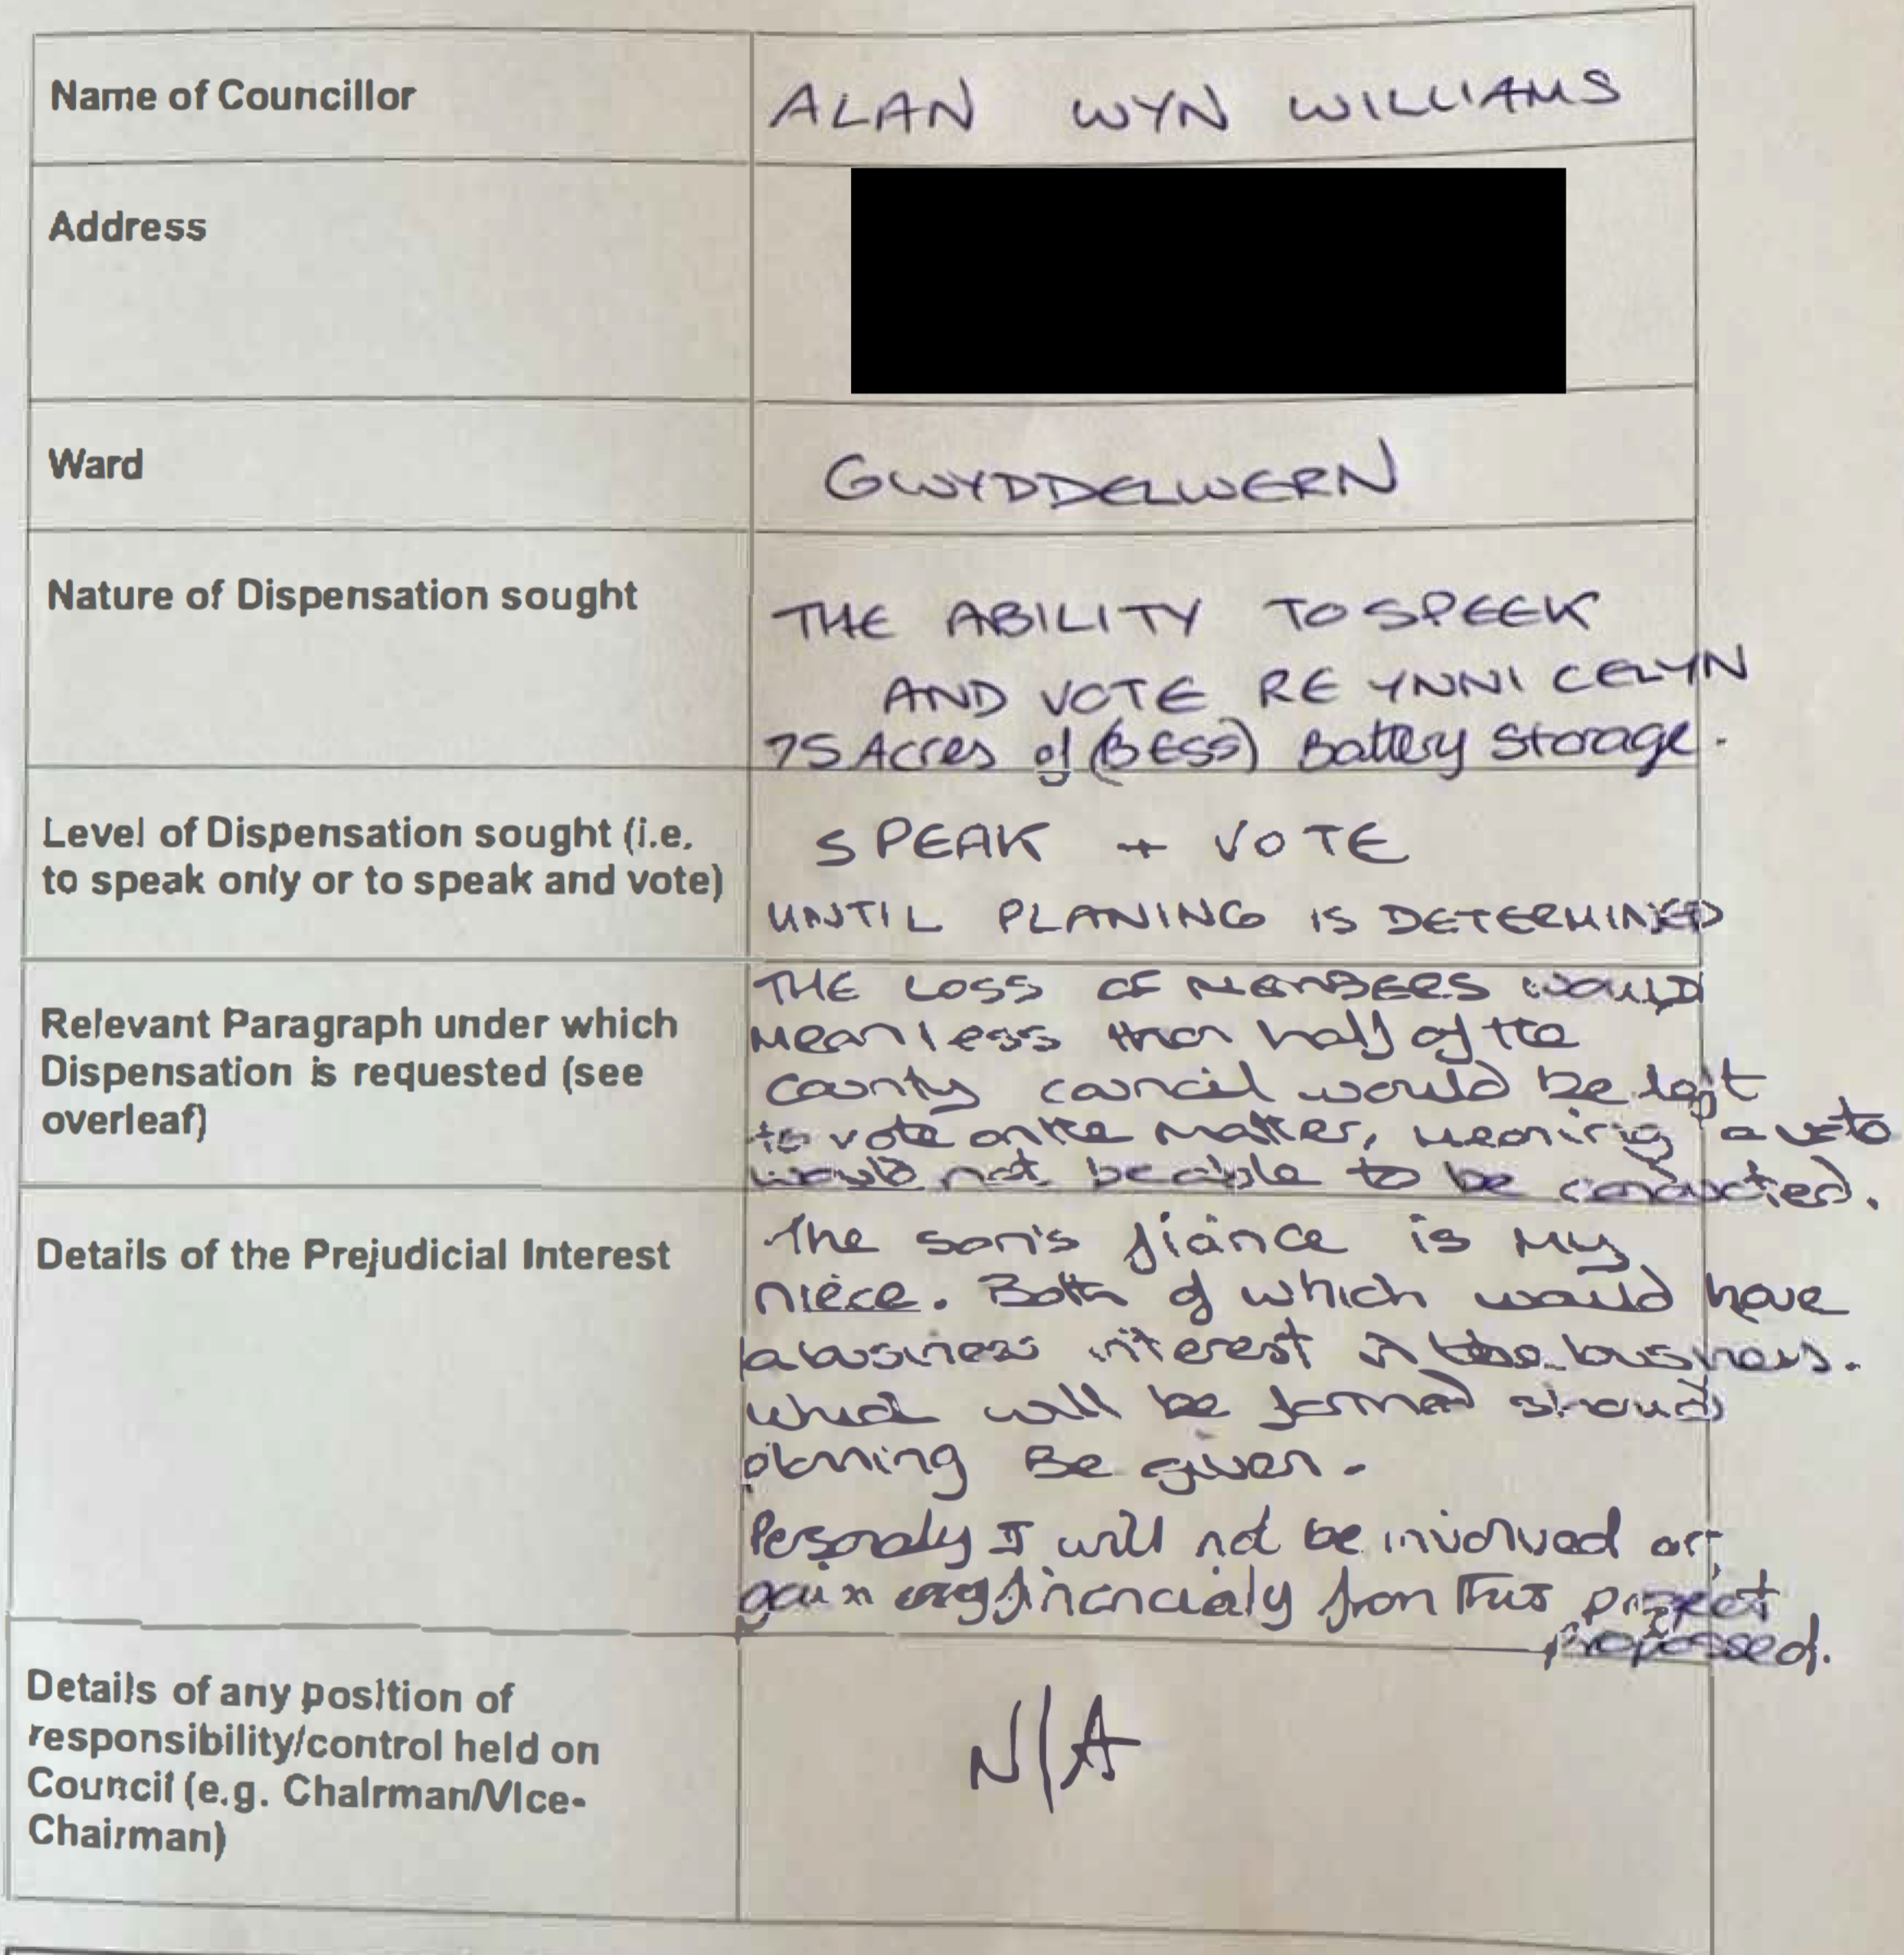 Name of Councillor
ALAN WYN WILLIAMS
Address
Ward
GWYDDELWERN
Nature of Dispensation sought
THE ABILITY TO SPEEK
AND VOTE RE YNNI CELYN
75 Acres of (BESS) Battery Storage.
Level of Dispensation sought (i.e.
to speak only or to speak and vote)
SPEAK + VOTE
UNTIL PLANING IS DETERMINED
Relevant Paragraph under which
Dispensation is requested (see
overleaf)
THE LOSS OF MEMBERS WOULD
Mean less than half of the
County council would be left
to vote on the matter, meaning a
would not be able to be conducted.
Details of the Prejudicial Interest
The son's fiánce is my
niece. Both of which would have
a business interest in business.
which will be formed should
planning Be given.
Personaly I will not be involved or
gain financialy from this project
proposed.
Details of any position of
responsibility/control held on
Council (e.g. Chairman/Vice-
Chairman)
N/A